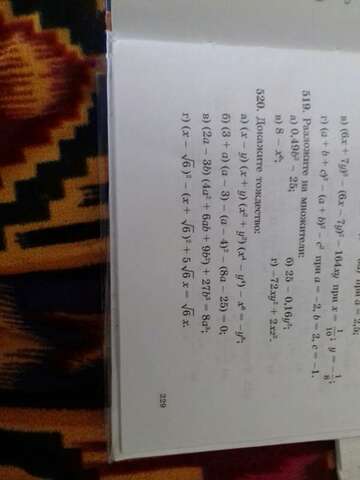 при a = 2,5;
в) (6x + 7y)² − (6x − 7y)² − 164xy при x = 1/16; y = −1/8;
г) (a + b + c)² − (a + b)² − c² при a = −2, b = 2, c = −1.
519. Разложите на множители:
а) 0,49b² − 25; б) 25 − 0,16y²;
в) 8 − x⁶; г) −72xy² + 2xz².
520. Докажите тождество:
а) (x − y) (x + y) (x² + y²) (x⁴ − y⁴) − x⁸ = −y⁸;
б) (3 + a) (a − 3) − (a − 4)² − (8a − 25) = 0;
в) (2a − 3b) (4a² + 6ab + 9b²) + 27b³ = 8a³;
г) (x − √6)² − (x + √6)² + 5√6 x = √6 x.
229